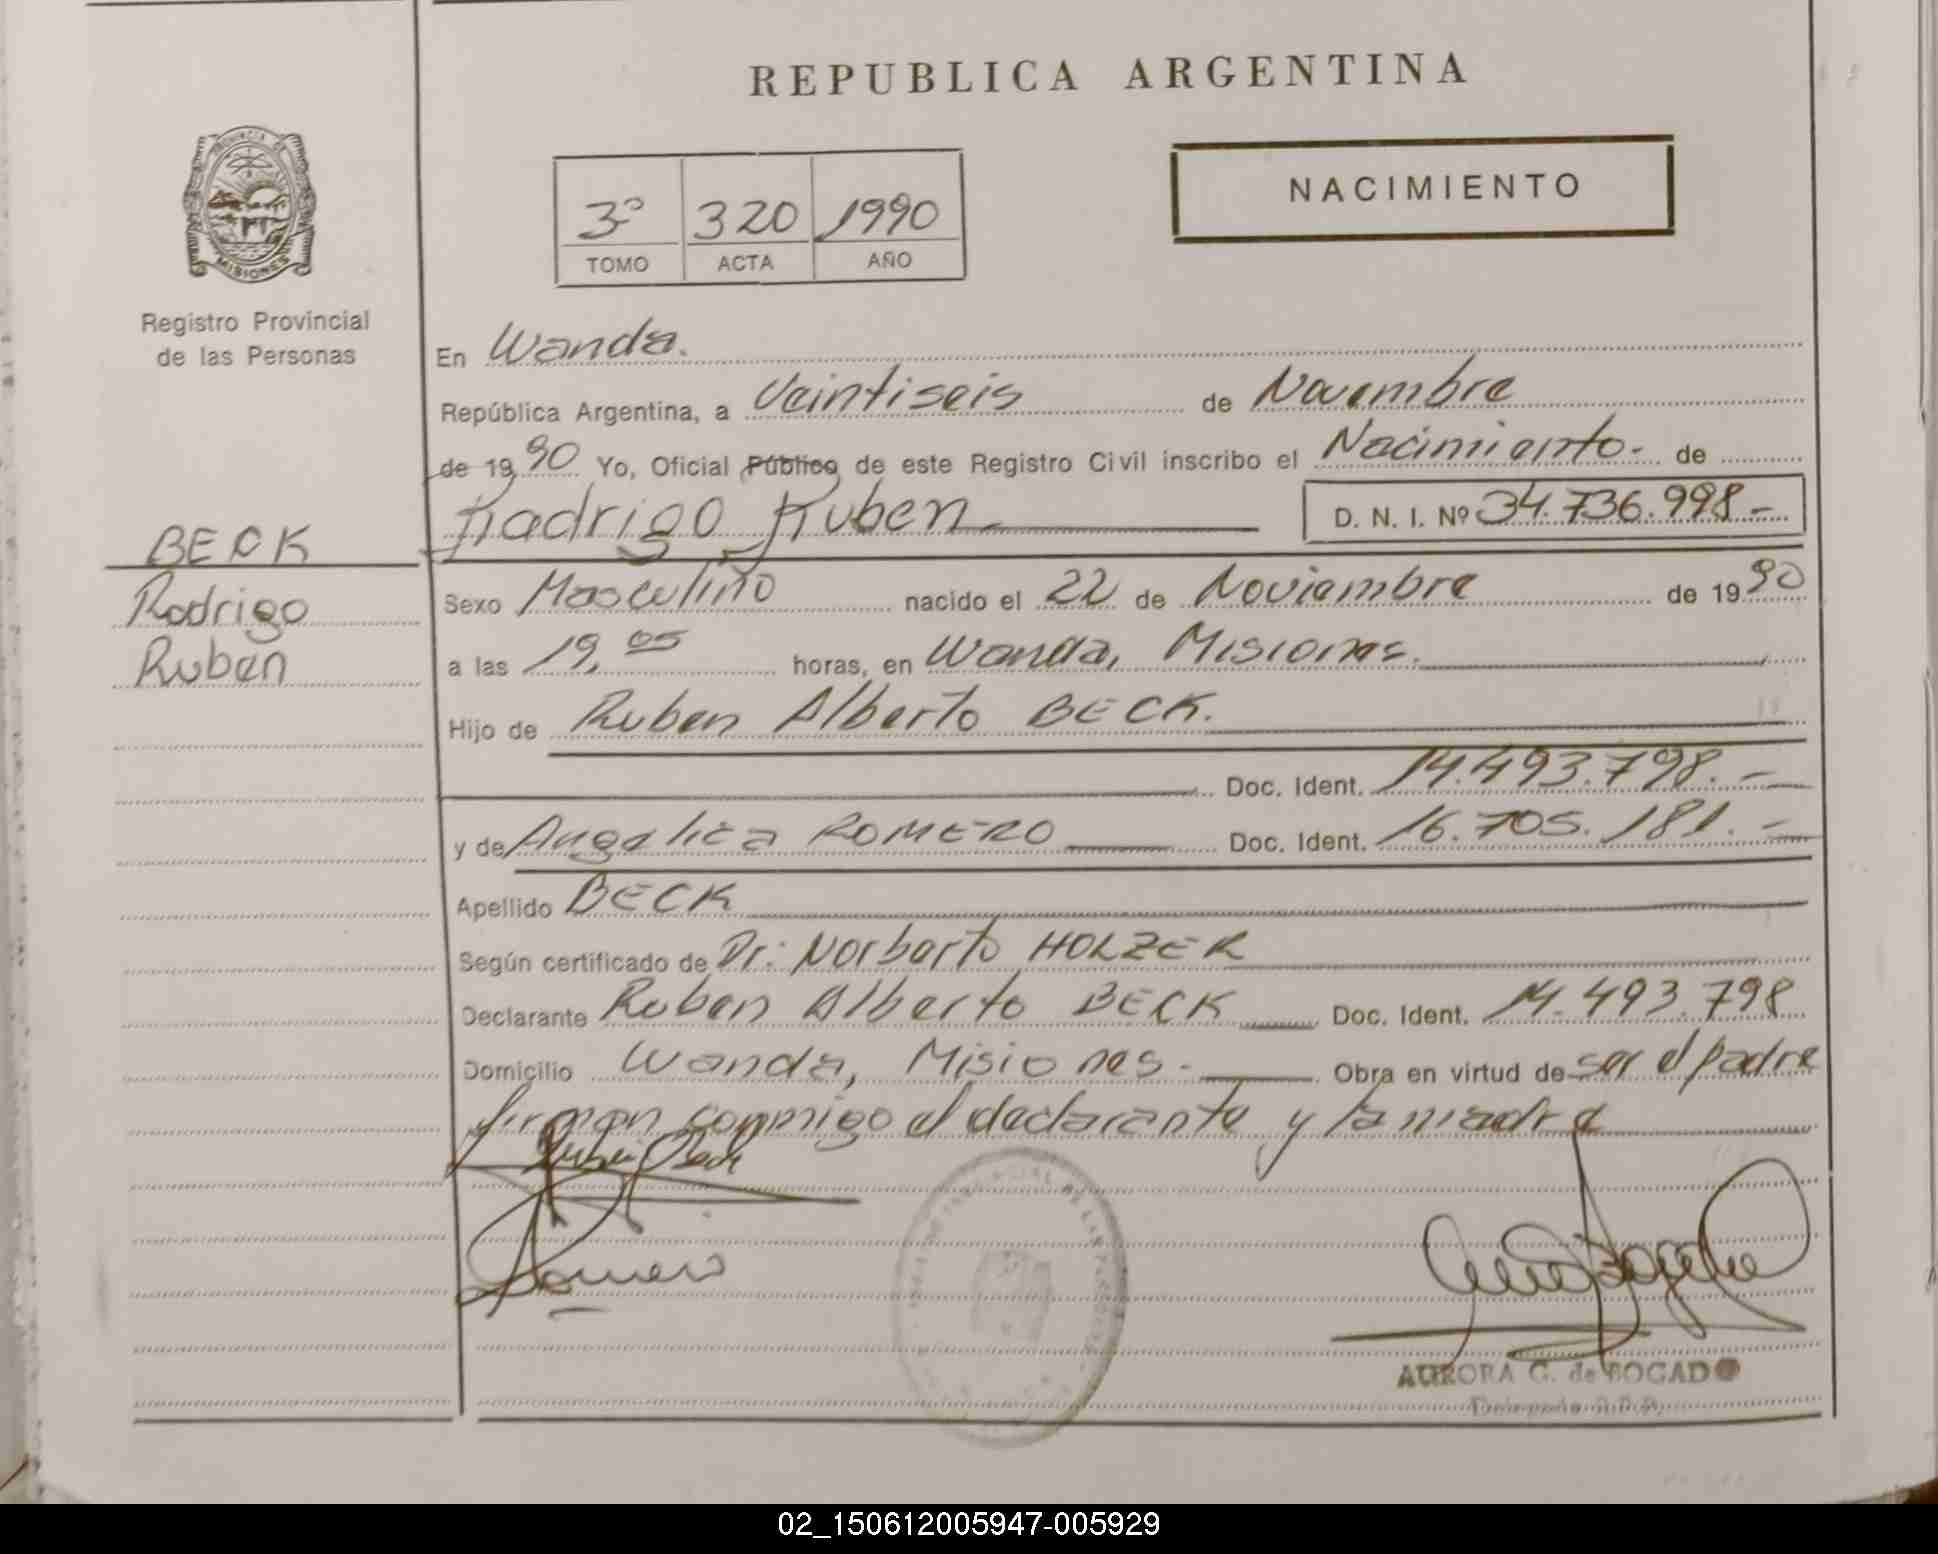 REPUBLICA ARGENTINA
NACIMIENTO
PROVINCIA DE
MISIONES
3º 320 1990
TOMO ACTA AÑO
Registro Provincial
de las Personas
BECK
Rodrigo
Ruben
En Wanda.
República Argentina, a Veintiseis de Novembre
de 19 90 Yo, Oficial Público de este Registro Civil inscribo el Nacimiento- de
Rodrigo Ruben
D. N. I. Nº 34.736.998-
Sexo Masculino nacido el 22 de Noviembre de 19 90
a las 19,05 horas, en Wanda, Misiones.
Hijo de Ruben Alberto BECK.
Doc. Ident. 14.493.798.-
y de Angelica ROMERO Doc. Ident. 16.705.181.-
Apellido BECK
Según certificado de Dr: Norberto HOLZER
Declarante Ruben Alberto BECK Doc. Ident. 14.493.798
Domicilio Wanda, Misiones.- Obra en virtud de ser el padre
firman conmigo el declarante y la madre
Romero
AURORA G. de BOGADO
Delegada R.P.P.
02_150612005947-005929